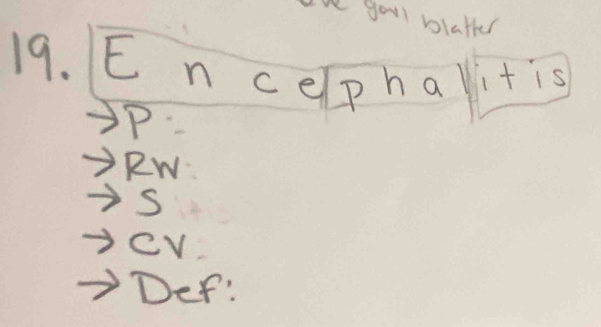 gall blatter
19. Encephalitis
→P:
→RW:
→S
→CV:
→Def: